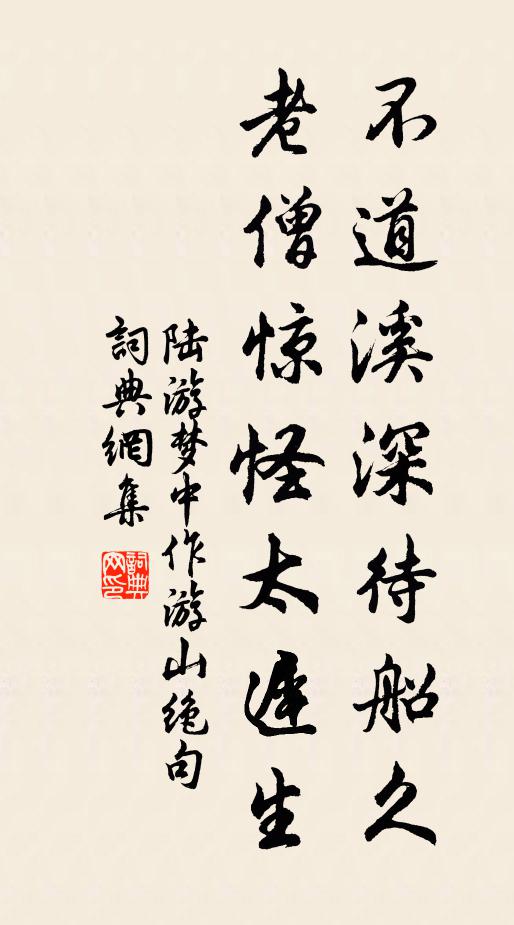 不道溪深待船久
老僧惊怪太遲生
陆游梦中作游山绝句
詞典網集
詞典网印